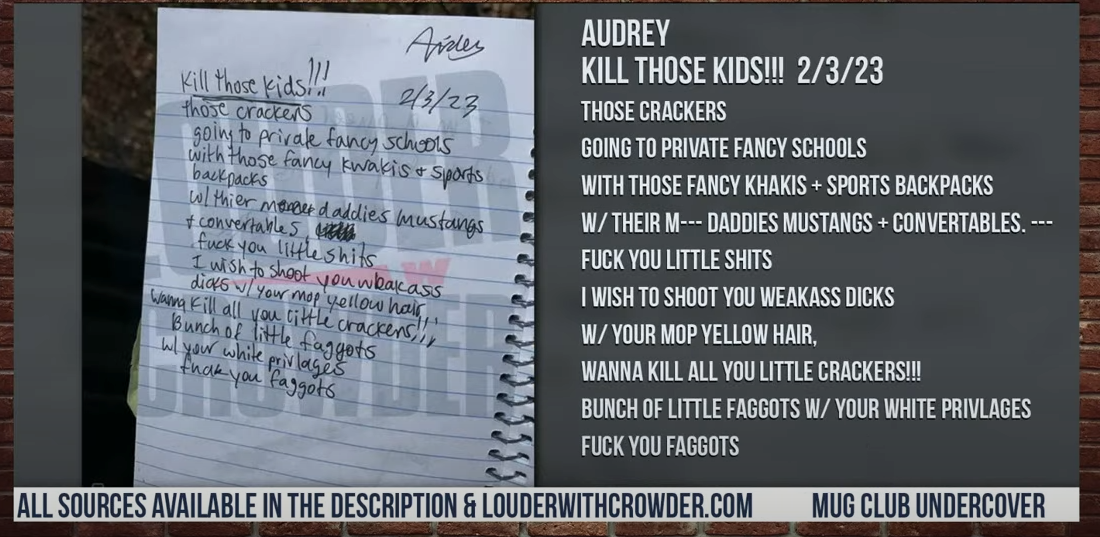 Aiden
Kill those kids!!!
2/3/23
those crackers
going to private fancy schools
with those fancy kwakis + sports
backpacks
w/ thier daddies mustangs
+ convertables
fuck you little shits
I wish to shoot you weakass
dicks w/ your mop yellow hair,
wanna kill all you little crackers!!!
Bunch of little faggots
w/ your white privlages
fuck you faggots
AUDREY
KILL THOSE KIDS!!! 2/3/23
THOSE CRACKERS
GOING TO PRIVATE FANCY SCHOOLS
WITH THOSE FANCY KHAKIS + SPORTS BACKPACKS
W/ THEIR M--- DADDIES MUSTANGS + CONVERTABLES. ---
FUCK YOU LITTLE SHITS
I WISH TO SHOOT YOU WEAKASS DICKS
W/ YOUR MOP YELLOW HAIR,
WANNA KILL ALL YOU LITTLE CRACKERS!!!
BUNCH OF LITTLE FAGGOTS W/ YOUR WHITE PRIVLAGES
FUCK YOU FAGGOTS
ALL SOURCES AVAILABLE IN THE DESCRIPTION & LOUDERWITHCROWDER.COM
MUG CLUB UNDERCOVER